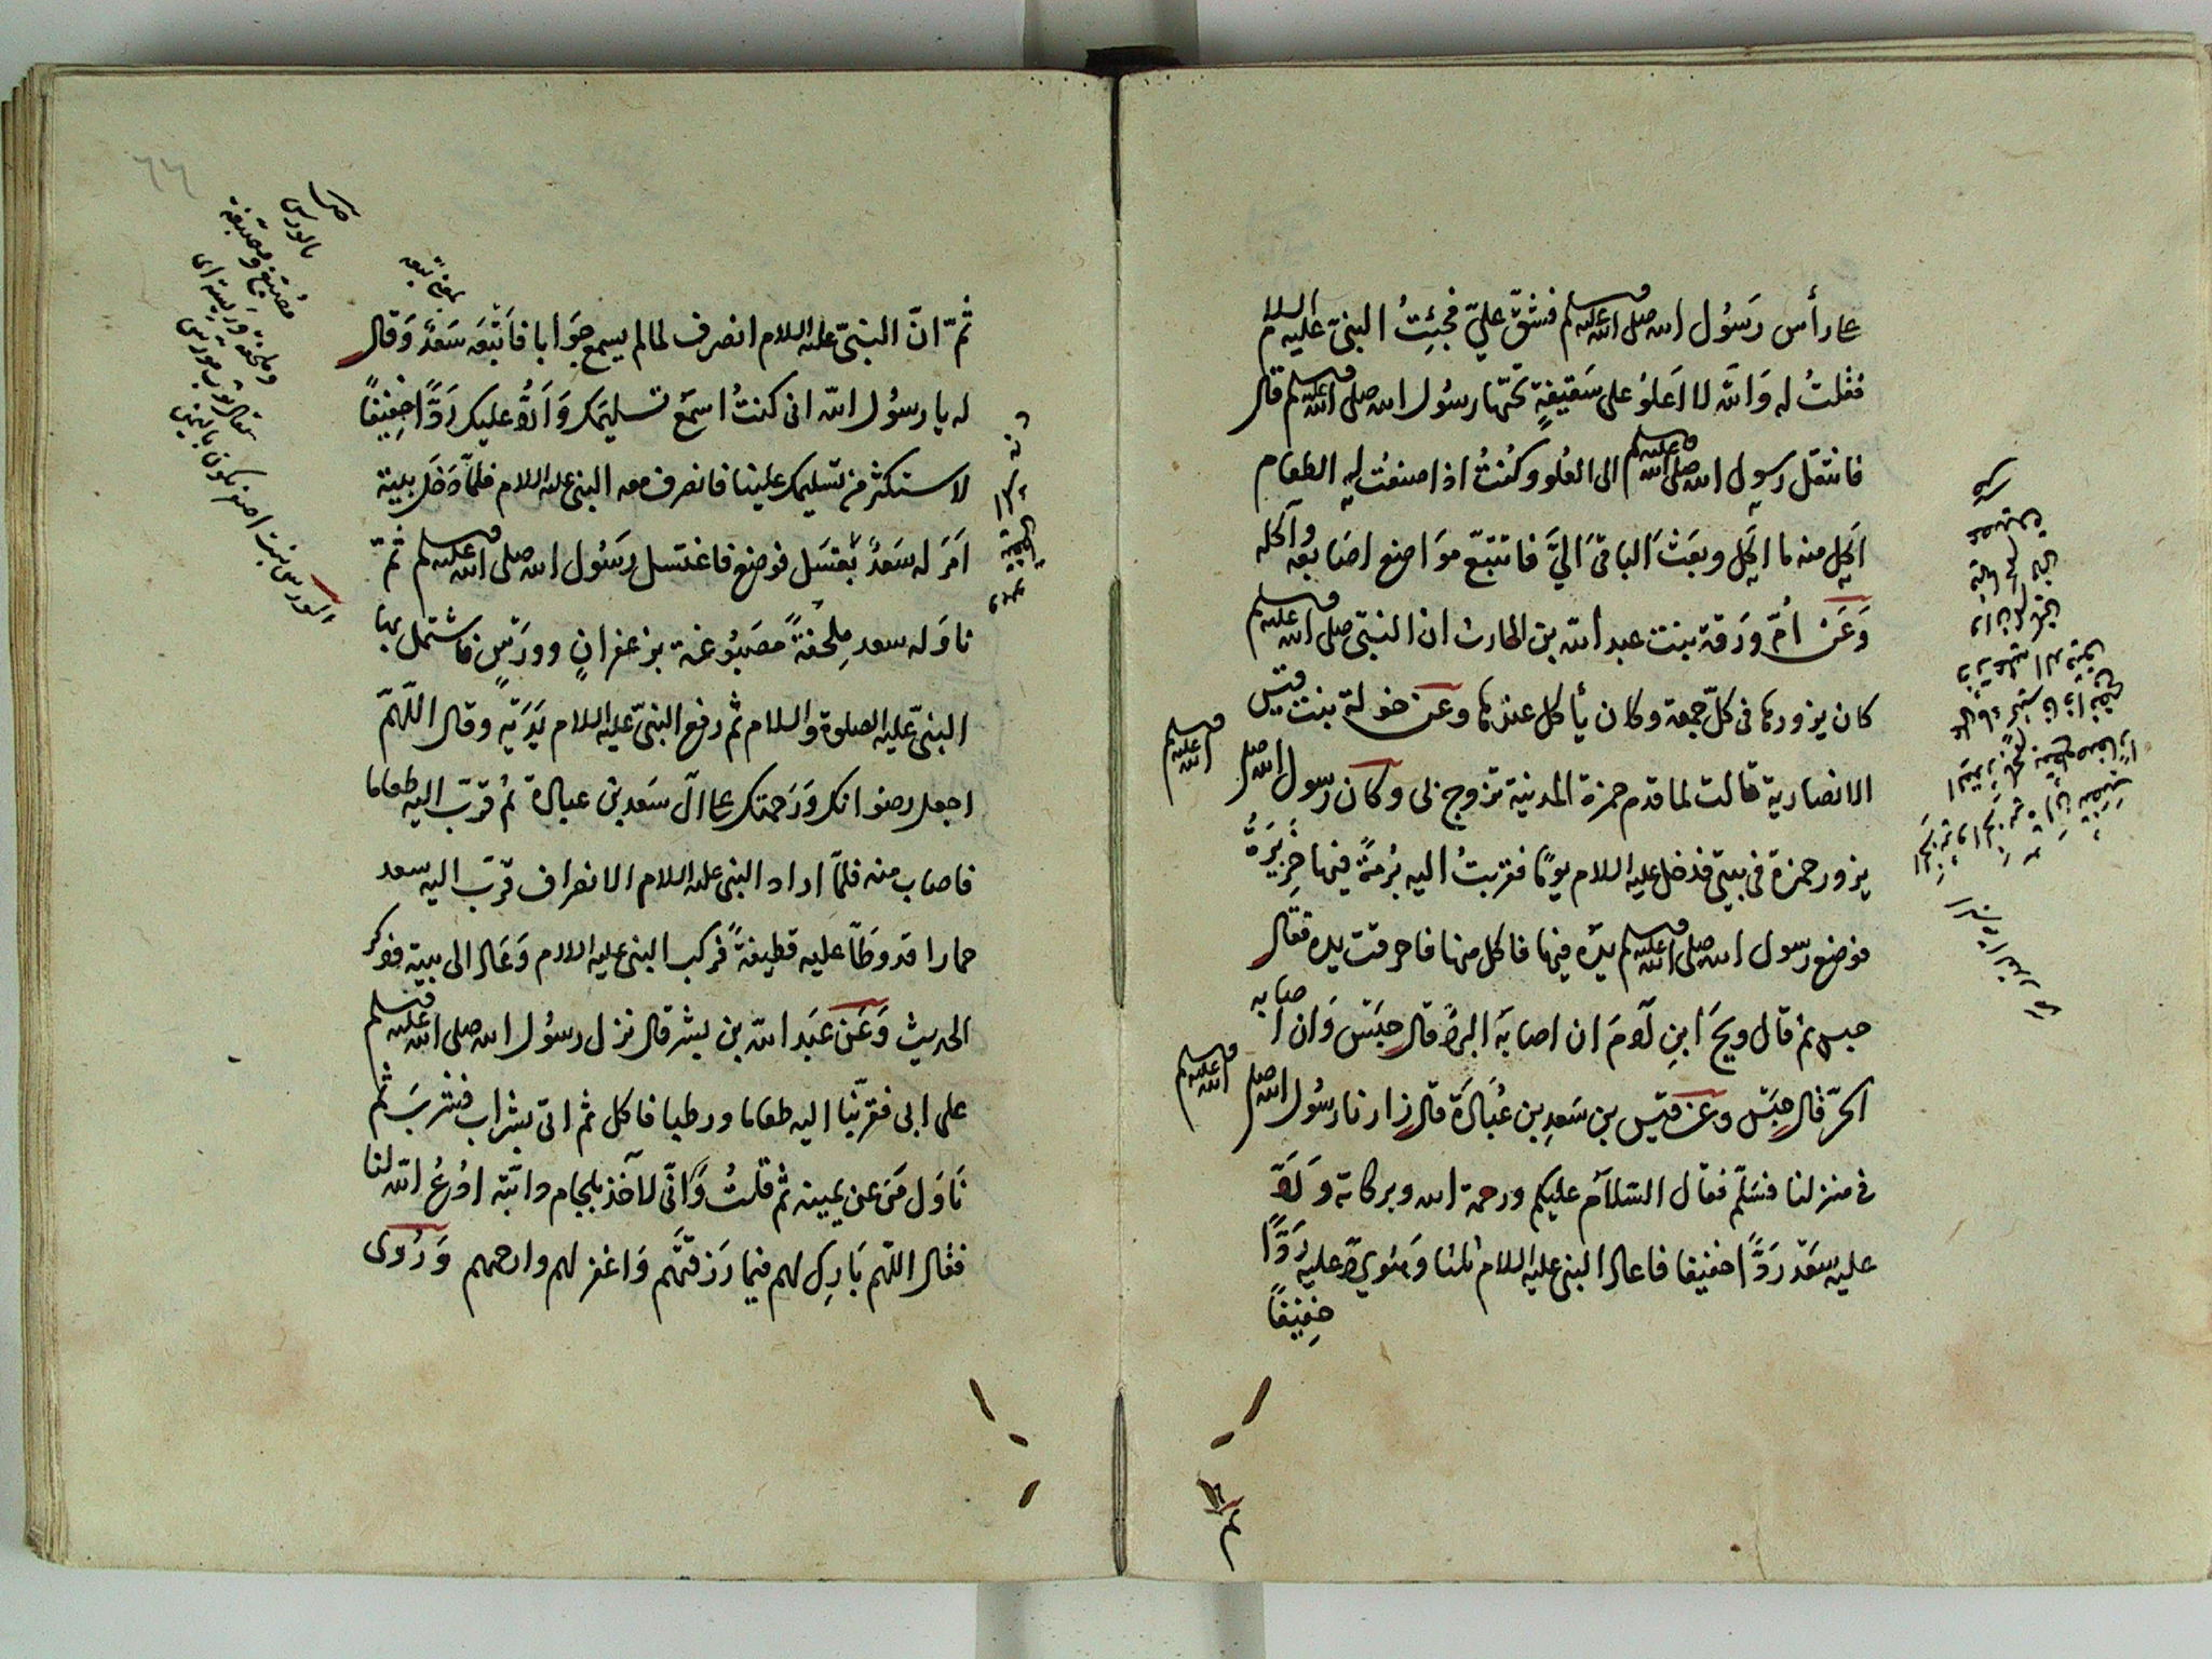 على رأس رَسُول الله صلى الله عليه وسلم فشقّ عليّ فجئتُ النبىّ عليه السلام
فقلتُ له وَالله لا اَعلوُ على سَقيفةٍ تحتها رسُول الله صلى الله عليه وسلم قال
فانتقل رسول الله صلى الله عليه وسلم الى العُلو وكنتُ اذا صنعتُ اليه الطعام
اكل منه ما اكل وبعَث الباقىَ الىَّ فاتتبّع موَاضع اصَابعه وآكله
وَعَن اُمّ ورَقة بنت عبد الله بن الحارث ان النبىّ صلى الله عليه وسلم
كان يزورها فى كلّ جمعة وكان يأكل عندها وعن خولة بنت قيس
الانصارية قالت لما قدم حمزة المدينة تزوج بى وكان رسول الله صلى الله عليه وسلم
يزور حمزة فى بيتى فدخل عليه السلام يومًا فقربتُ اليه بُرمةً فيها خَزِيرَةٌ
فوضع رسول الله صلى الله عليه وسلم يدَه فيها فاكل منها فاحرقت يده فقال
حسِ ثم قال ويحَ ابنِ آدمَ ان اصابَه البردُ قال حسّ وَان اصابه
الحرّ قال حسّ وعن قيس بن سَعدِ بن عُبَادَة قال زارنا رسُول الله صلى الله عليه وسلم
فى منزلنا فسَلّم فقال السّلام عليكم ورحمة الله وبركاته وَرَدّ
عليه سَعْد رَدًّا خفيفا فاعاد النبى عليه السلام ثلثا وَهُوَ يردّ عليه رَدًّا
خفيفًا
ثمّ انّ النبىّ عليه السلام انصرف لما لم يسمع جوَابا فاَتبَعَه سَعدٌ وَقال
له يا رسوُل الله انى كنتُ اسمَع تسليمَك وَاَردُّ عليك رَدًّا خفيفًا
لاستكثر من تسليمك علينا فانصرف معه النبى عليه السلام فلمّا دَخَل بيته
اَمَرَ له سَعدٌ بغسَل فوضع فاغتسل رسَوُل الله صلى الله عليه وسلم ثمّ
ناوَله سعد مِلحفةً مصَبُوغة بزعفرانٍ وورَسٍ فاشتمل بها
النبىّ عليه الصلوة والسلام ثم رفع النبىّ عليه السلام يَدَيه وقال اللّهمّ
اجعل رضوانك وَرَحمتك على آل سَعد بن عبادة ثم قرّبَ اليه طعاما
فاصاب منه فلمّا اراد النبى عليه السلام الانصراف قرّبَ اليه سعد
حمارا قد وطّاَ عليه قطيفةً فركب النبى عليه السلام وَعَاد الى بيته فذكر
الحديث وَعَن عبَد الله بن بشر قال نزل رسوُل الله صلى الله عليه وسلم
على ابى فقرّبنا اليه طعاما ورطبا فاكل ثم اتىَ بشراب فشربَ ثم
نَاوَل مَن عن يمينه ثم قلتُ وَانّى لآخذ بلجام دابّته ادُعُ الله لنا
فقال اللّهم بَارِك لهم فيما رَزقتَهم وَاغفر لهم وارحمهم وَرُوى